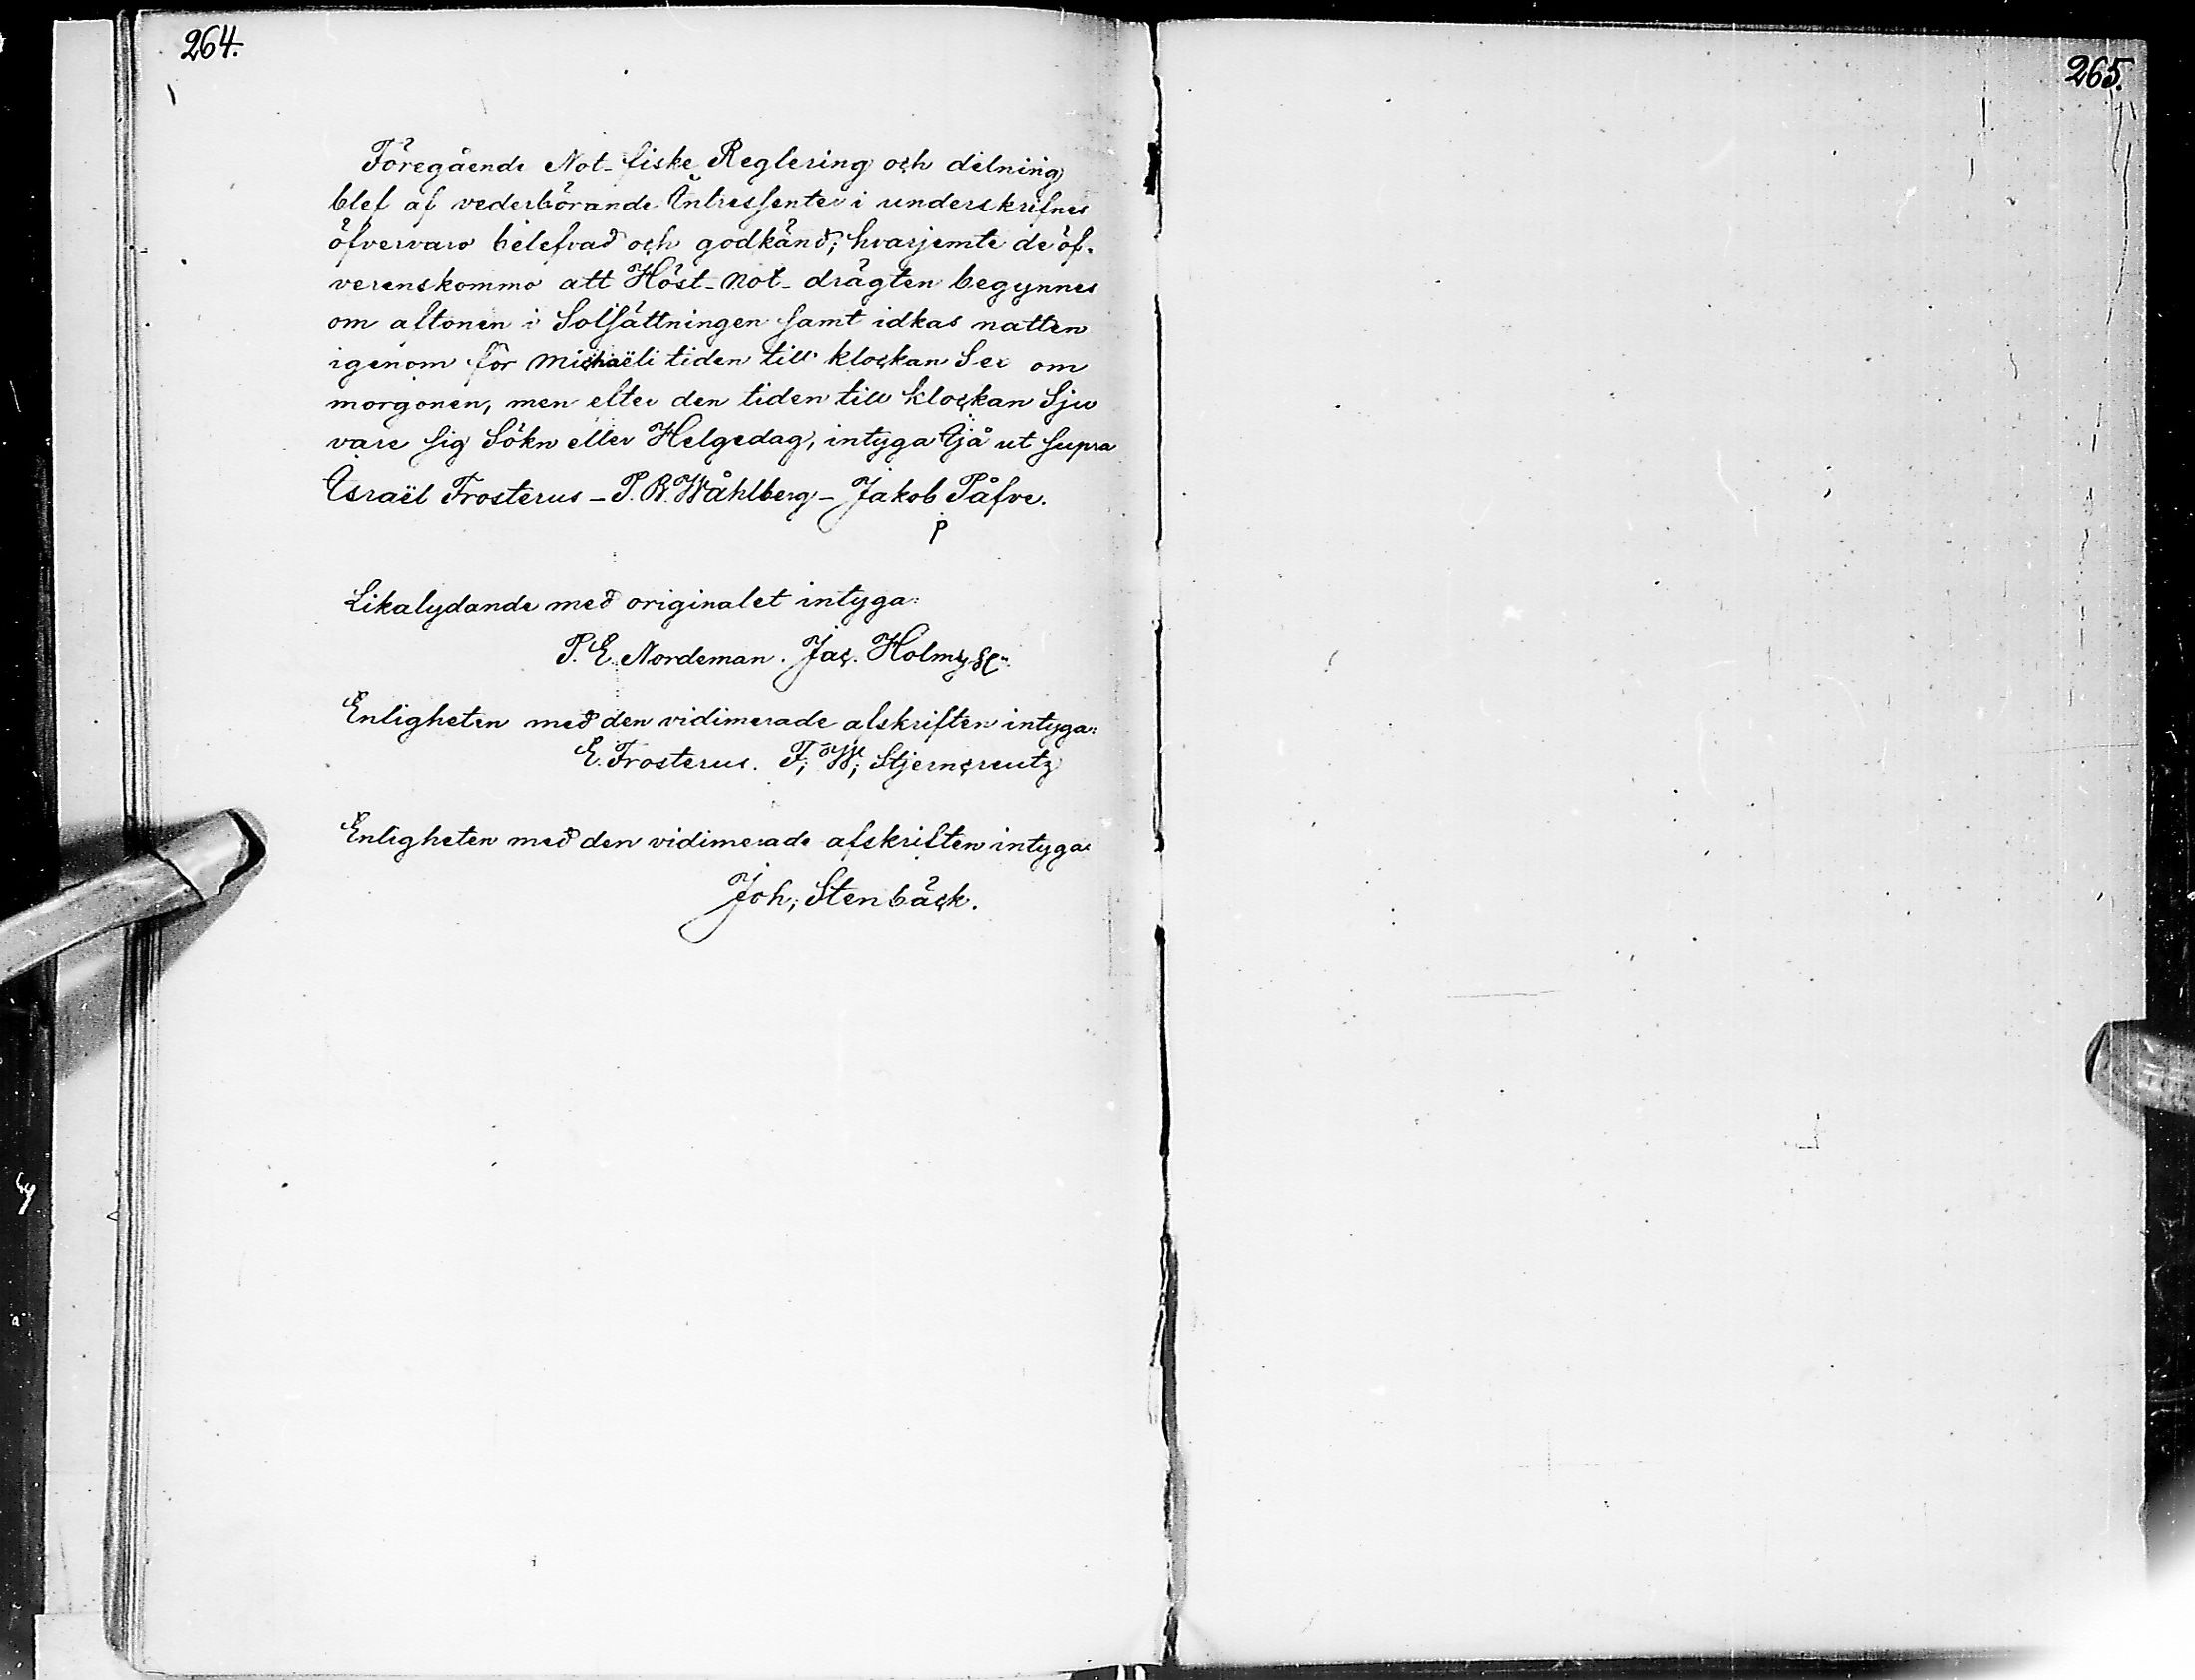 264.
265.
Föregående Not-fiske Reglering och delning
blef af vederbörande Intressenter i underskrifnes
öfvervaro belefvad och godkänd; hvarjemte de öf-
verenskommo att Höst-not-drägten begynnes
om aftonen i Solsättningen samt idkas natten
igenom för Michaëli tiden till klockan Sex om
morgonen, men efter den tiden till klockan Sju
vare sig Sökn eller Helgedag, intyga Ijå ut supra
Israël Frosterus – P. B. Wåhlberg – Jakob Påfve.
P
Likalydande med originalet intyga:
P. E. Nordeman. Jac.
Enligheten med den vidimerade afskriften intyga:
E. Frosterus. F; W; Stjerncreutz
Enligheten med den vidimerade afskriften intyga:
Joh; Stenbäck.